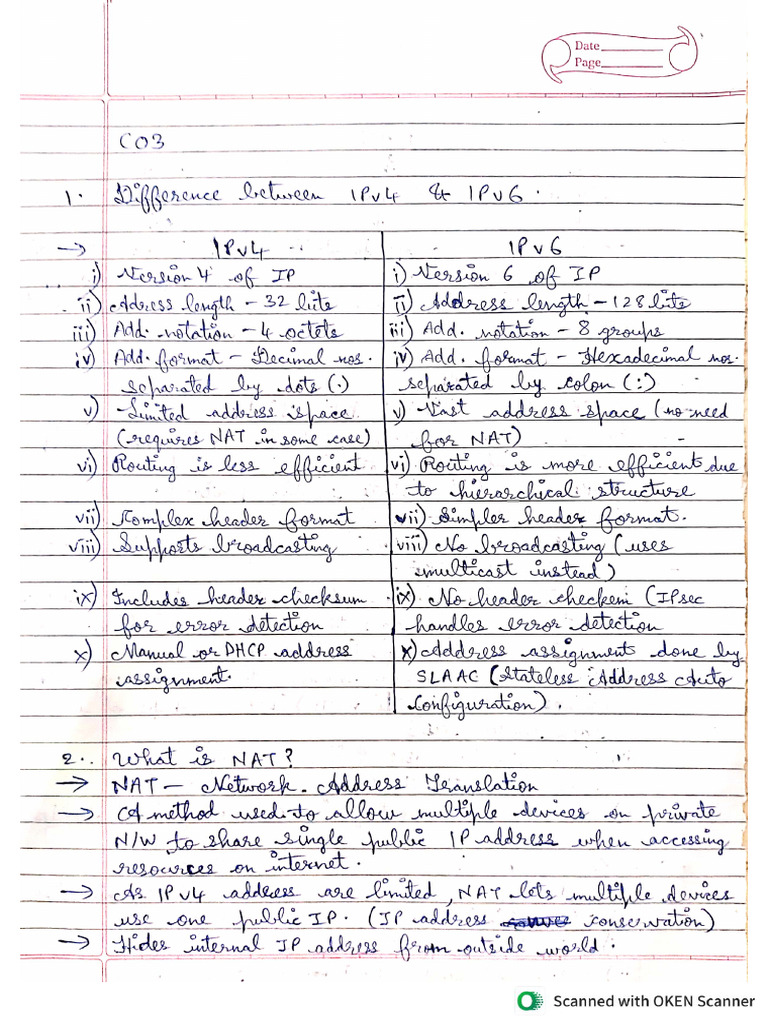 Date
Page
CO3
1. Difference between IPv4 & IPv6.
→ IPv4 IPv6
i) Version 4 of IP i) Version 6 of IP
ii) Adress length - 32 bits ii) Address length - 128 bits
iii) Add. notation - 4 octets iii) Add. notation - 8 groups
iv) Add. format - Decimal nos. iv) Add. format - Hexadecimal nos.
separated by dots (.) separated by colon (:)
v) Limited address space v) Vast address space (no need
(requires NAT in some case) for NAT)
vi) Routing is less efficient vi) Routing is more efficient due
to hierarchical structure
vii) Complex header format vii) Simpler header format.
viii) Supports broadcasting viii) No broadcasting (uses
multicast instead)
ix) Includes header checksum ix) No header checkem (IPsec
for error detection handles error detection
x) Manual or DHCP address x) Adddress assignment done by
assignment. SLAAC (Stateless Address Auto
Configuration).
2. What is NAT?
→ NAT - Network Address Translation
→ A method used to allow multiple devices on private
N/W to share single public IP address when accessing
resources on internet.
→ As IPv4 address are limited, NAT lets multiple devices
use one public IP. (IP address conservation)
→ Hides internal IP address from outside world.
Scanned with OKEN Scanner